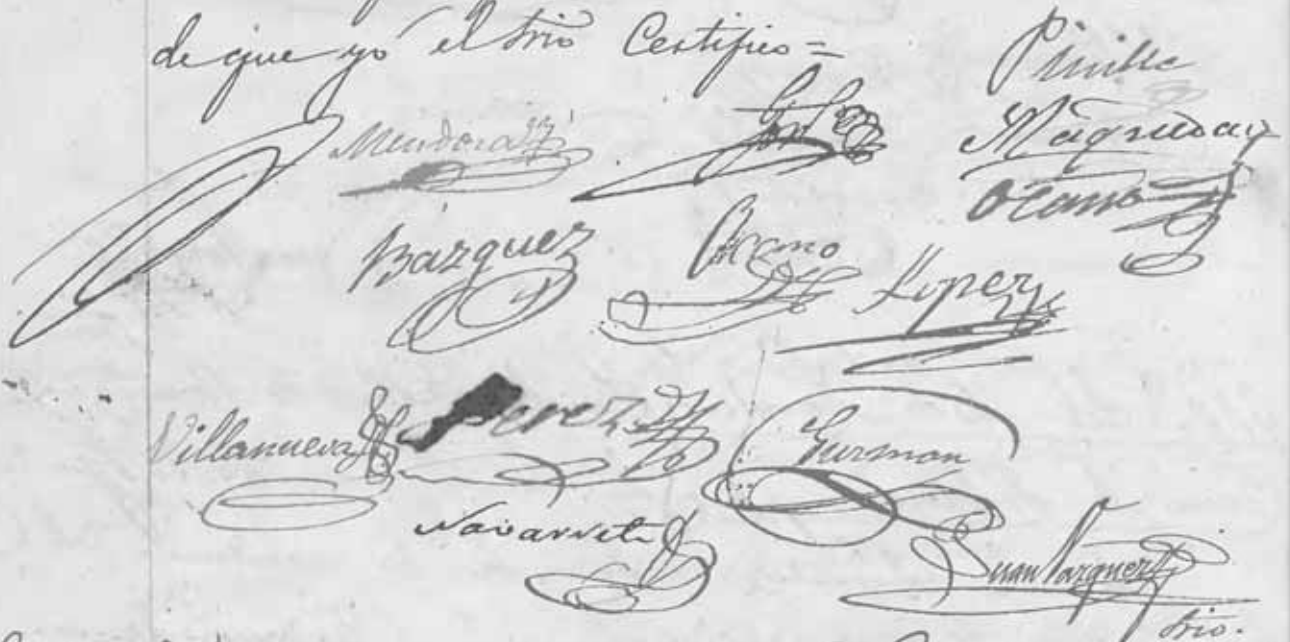 de que yo el Srio Certifico =
Pinilla
Mendoza
Bázquez
Ocaña
Lopez
Villanueva
Perez
Guzman
Navarrete
Juan Vazquez
Srio.